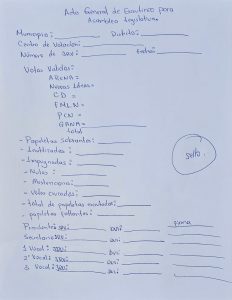 Acta General de Escrutinio para
Asamblea Legislativa.
Municipio: Distrito:
Centro de Votación:
Número de JRV: Fecha:
Votos Validos:
ARENA =
Nuevas Ideas =
C.D =
F.M.L.N =
PCN =
GANA =
total
- Papeletas Sobrantes:
- Inutilizadas:
- Impugnados:
- Nulos:
- Abstenciones:
- Votos cruzados:
- total de papeletas escrutadas:
- papeletas faltantes:
sello.
firma
Presidente
Secretario
1 Vocal:
2 Vocal:
3 Vocal: